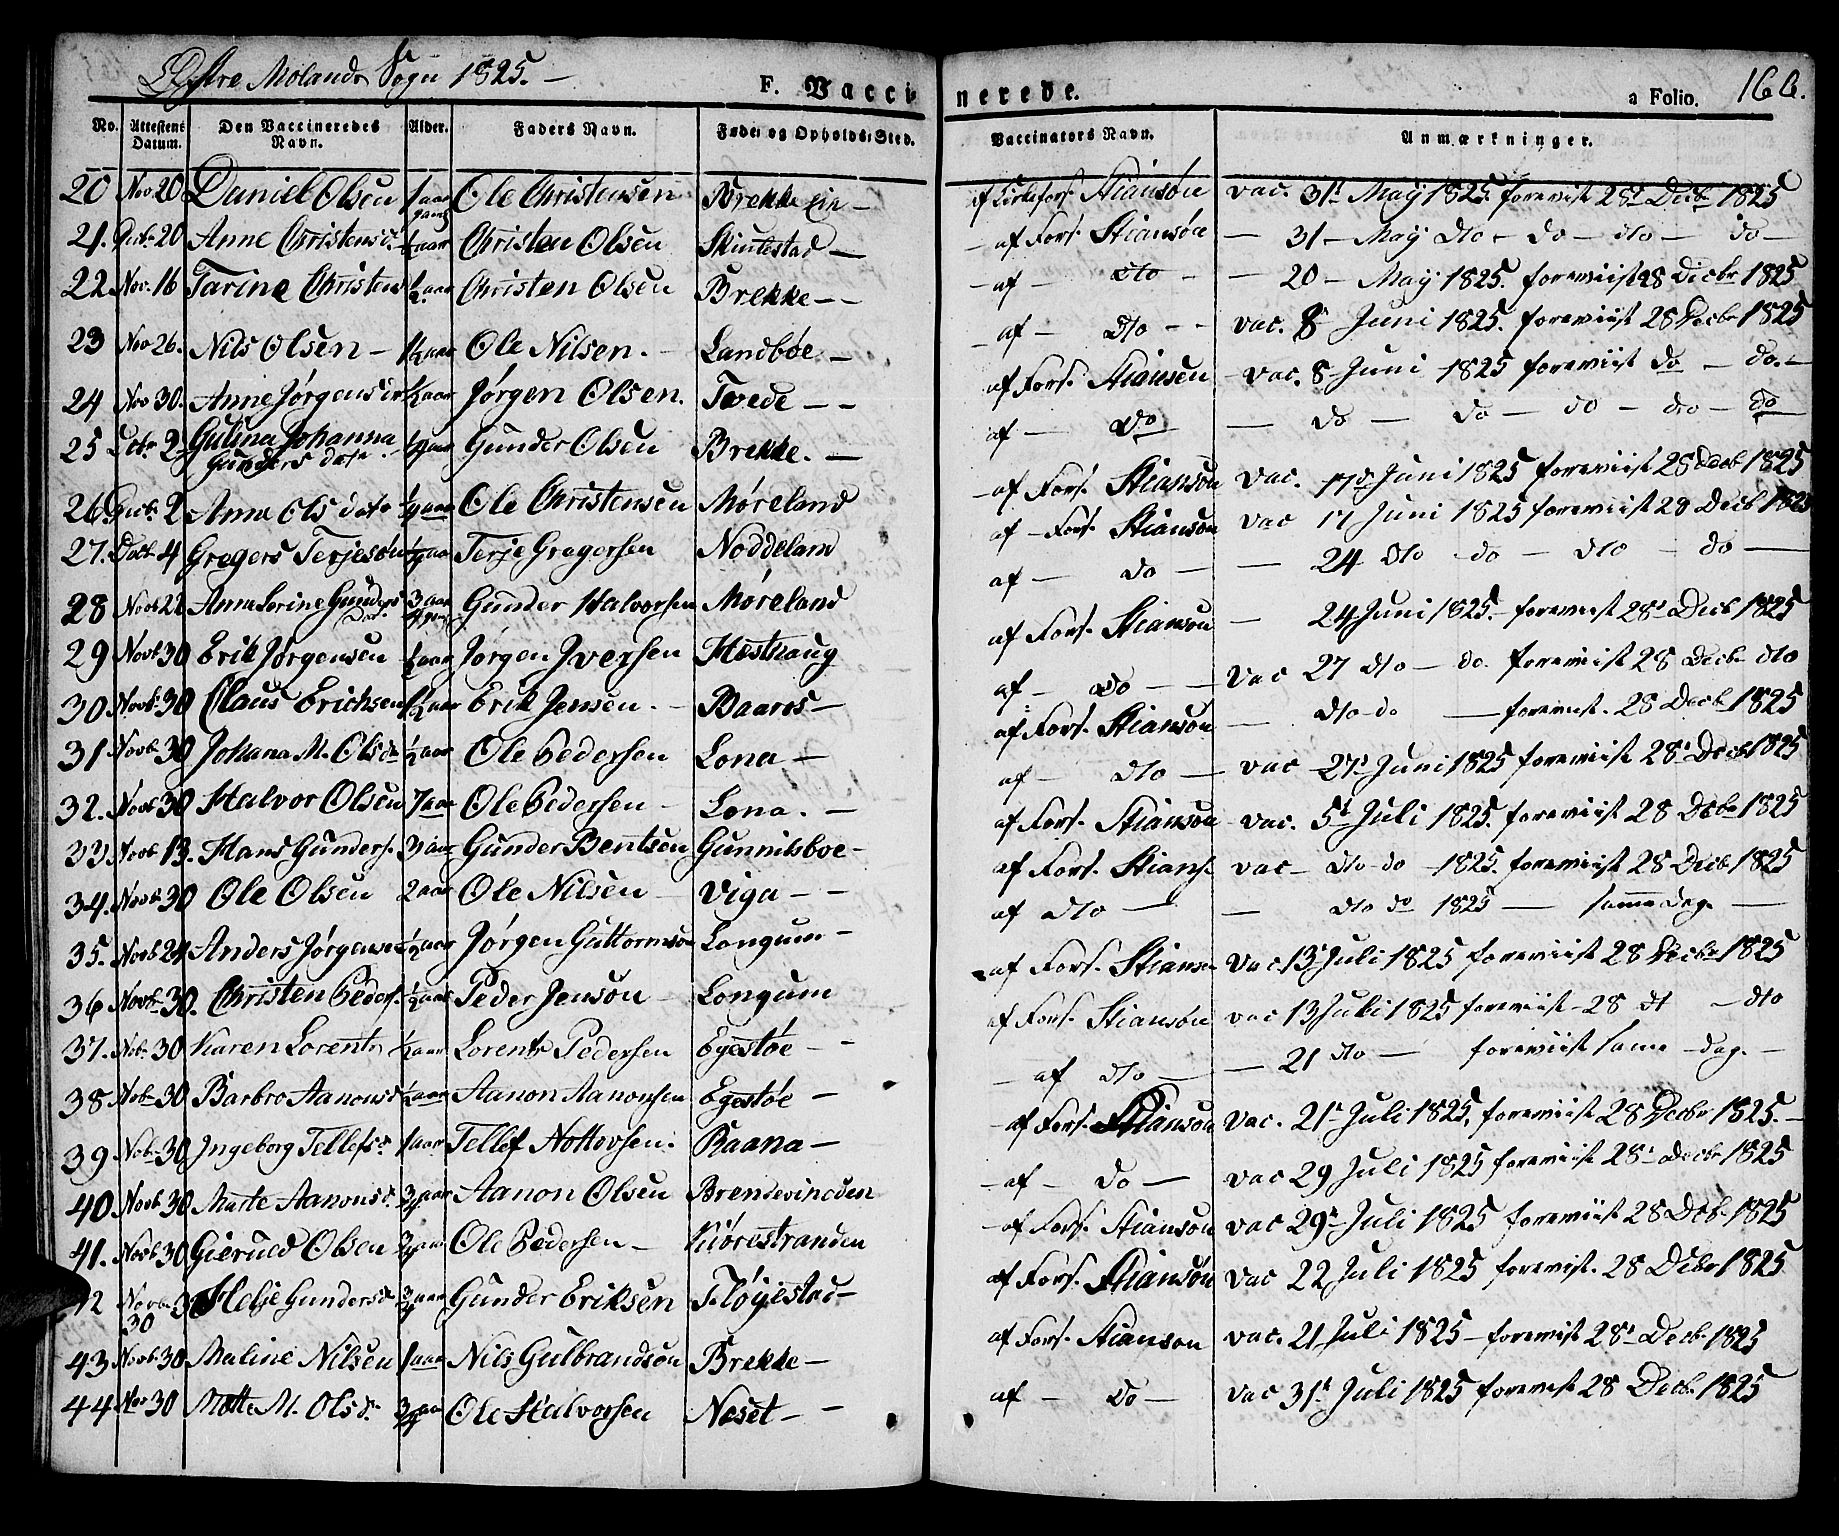 Østre Molands Sogn 1825.
F. Vaccinerede.
a Folio. 166.
No. Attestens Datum. Den Vaccineredes Navn. Alder. Faders Navn. Føde- og Opholds-Sted. Vaccinators Navn. Anmærkninger.
20 Nov 20 Daniel Olsen 1 aar Ole Christensen Brekke Ein — af Kirkefors. Stiansøn vac. 31t May 1825. foreviist 28t Decb 1825
21. Decbr 20 Anne Christensd. ½ aar Christen Olsen Skintestad — af Fors. Stiansøn — 31 — May dto — do — dto — do —
22 Nov. 16 Tarine Christens ½ aar Christen Olsen Brekke — — af — dto — — 20 — May 1825. foreviist 28 Decbr 1825
23 Nov 26. Nils Olsen — 1½ aar Ole Nilsen. — Landbøe. — af — dto — — vac. 8 Juni 1825. foreviist 28 Decbr 1825
24 Nov 30. Anne Jørgensd ½ aar Jørgen Olsen. Tvede — — af Fors. Stiansen — vac. 8 Juni 1825 foreviist do — do. —
25 Decbr 2 Gulina Johanna Gunders datr ¼ aar Gunder Olsen Brekke. — af — do — do — do — do — dto — do
26 Decbr. 2 Anna Ols datr ¼ aar Ole Christensen Møreland — af Fors. Stiansøn vac. 17d Juni 1825 foreviist 28 Decb 1825
27. Decb 4 Gregers Terjesøn ½ aar Terje Gregersen Noddeland af — Fors. Stiansøn vac 17 Juni 1825 foreviist 28 Decb 1825
28 Novb 22 Anna Serine Gunders Datr. 3 aar Gunder Halvorsen Møreland af — do — — 24 dto do — dto — do —
29 Novb 30 Erik Jørgensen ½ aar Jørgen Iversen Hesthaug af Fors. Stiansøn — 24 Juni 1825. — foreviist 28t Decb 1825
30 Novb. 30 Claus Erichsen 1½ aar Erik Jensen. — Baaros — af — do — — vac 27 dto — do. foreviist 28 Decbr dto
31 Novb. 30 Johana M. Olsdr ½ aar Ole Pedersen Lona — af Fors. Stiansøn — dto — do — foreviist. 28 Decb 1825
32. Novb 30 Halvor Olsen 7 aar Ole Pedersen — Lona. — af — dto — vac 27t Juni 1825 foreviist 28t Decbr 1825
33 Novb 13. Hans Gunders. 3 aar Gunder Bentsen Gunnilsboe — af Fors. Stiansøn — vac. 5t Juli 1825. foreviist 28 Decbr 1825
34. Novb 30 Ole Olsen 2 aar Ole Nilsen — Viga — — af Fors. Stians. vac — dto — do — 1825. foreviist 28 Decb 1825
35. Novb 24 Anders Jørgensen ½ aar Jørgen Guttormsøn Longum — af dto — — dto do 1825 — samme dag. —
36 Novb. 30. Christen Peders. ½ aar Peder Jensøn — Longum af Fors. Stiansøn vac. 13t Juli 1825 foreviist 28 Decbr 1825
37. Nob. 30 Karen Lorents ½ aar Lorents Pedersen Egestøe — — af Fors. Stiansøn vac 13 Juli 1825 foreviist — 28 dt — dto
38 Nob. 30 Barbro Aanonsd ½ aar Aanon Aanonsen Egestøe — — af dto — — 21 dto — foreviist same dag. —
39 Nob. 30 Ingeborg Tellefsdr 1 aar Tellef Nottovsen. Raana — — af Fors. Stiansøn vac. 21t Juli 1825. foreviist 28 Decbr 1825. —
40 Novb 30 Marte Aanonsd. ¾ aar Aanon Olsen Brendevinoden — af — do — vac 29 Juli 1825 foreviist 28t Decbr 1825
41. Novb 30 Gierued Olsen ¾ aar Ole Pedersen — Kiørestranden — af Fors. Stiansøn vac 29t Juli 1825 foreviist 28 Decb. 1825
42 Novb. 30 Helje Gundersd ¾ aar Gunder Eriksen Fløgestad — af Fors. Stiansøn vac 22 Juli 1825 foreviist. 28 Decbr 1825
43 Novb 30 Maline Nilsen 1 aar Nils Gulbrandsøn Brekke — af Fors. Stianson vac. 21 Juli 1825 — foreviist 28t Decb. 1825
44 Nov 30 Mette M. Olsd. ¾ aar Ole Halvorsen Neset — — af — do — vac 31t Juli 1825 foreviist 28 Decb. 1825